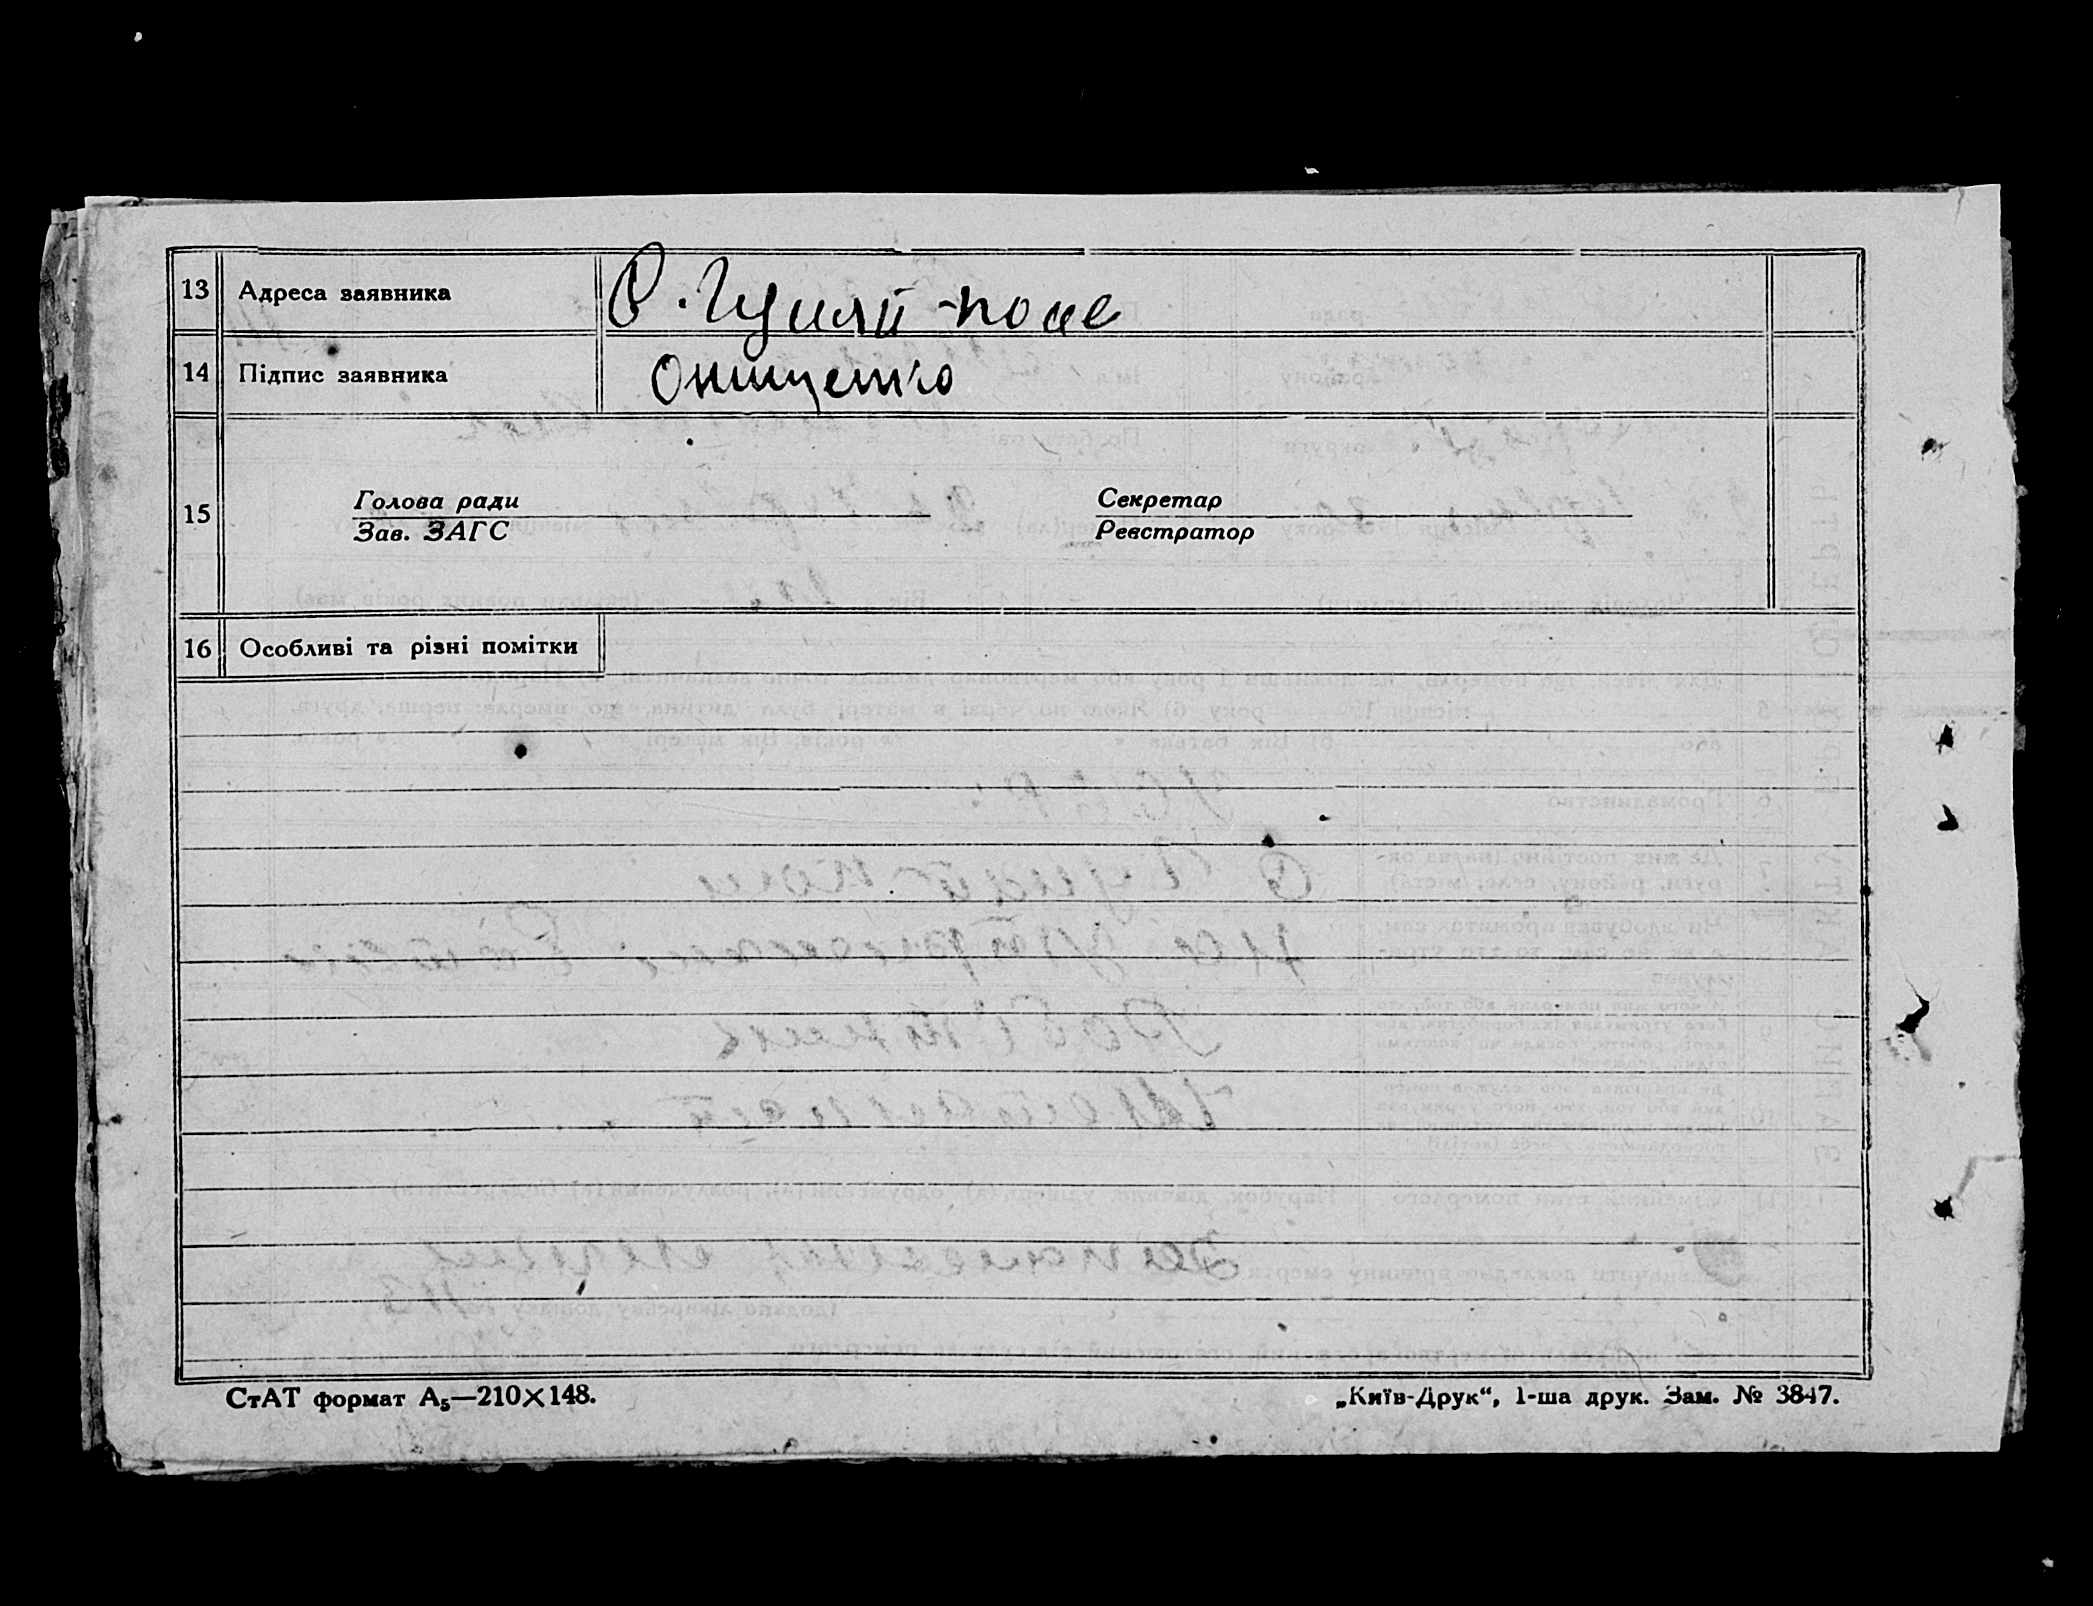 13 Адреса заявника С. Гуляй-поле
14 Підпис заявника Онищенко
15 Голова ради Секретар
Зав. ЗАГС Реєстратор
16 Особливі та різні помітки
СтАТ формат А₅—210×148. „Київ-Друк“, 1-ша друк. Зам. № 3847.